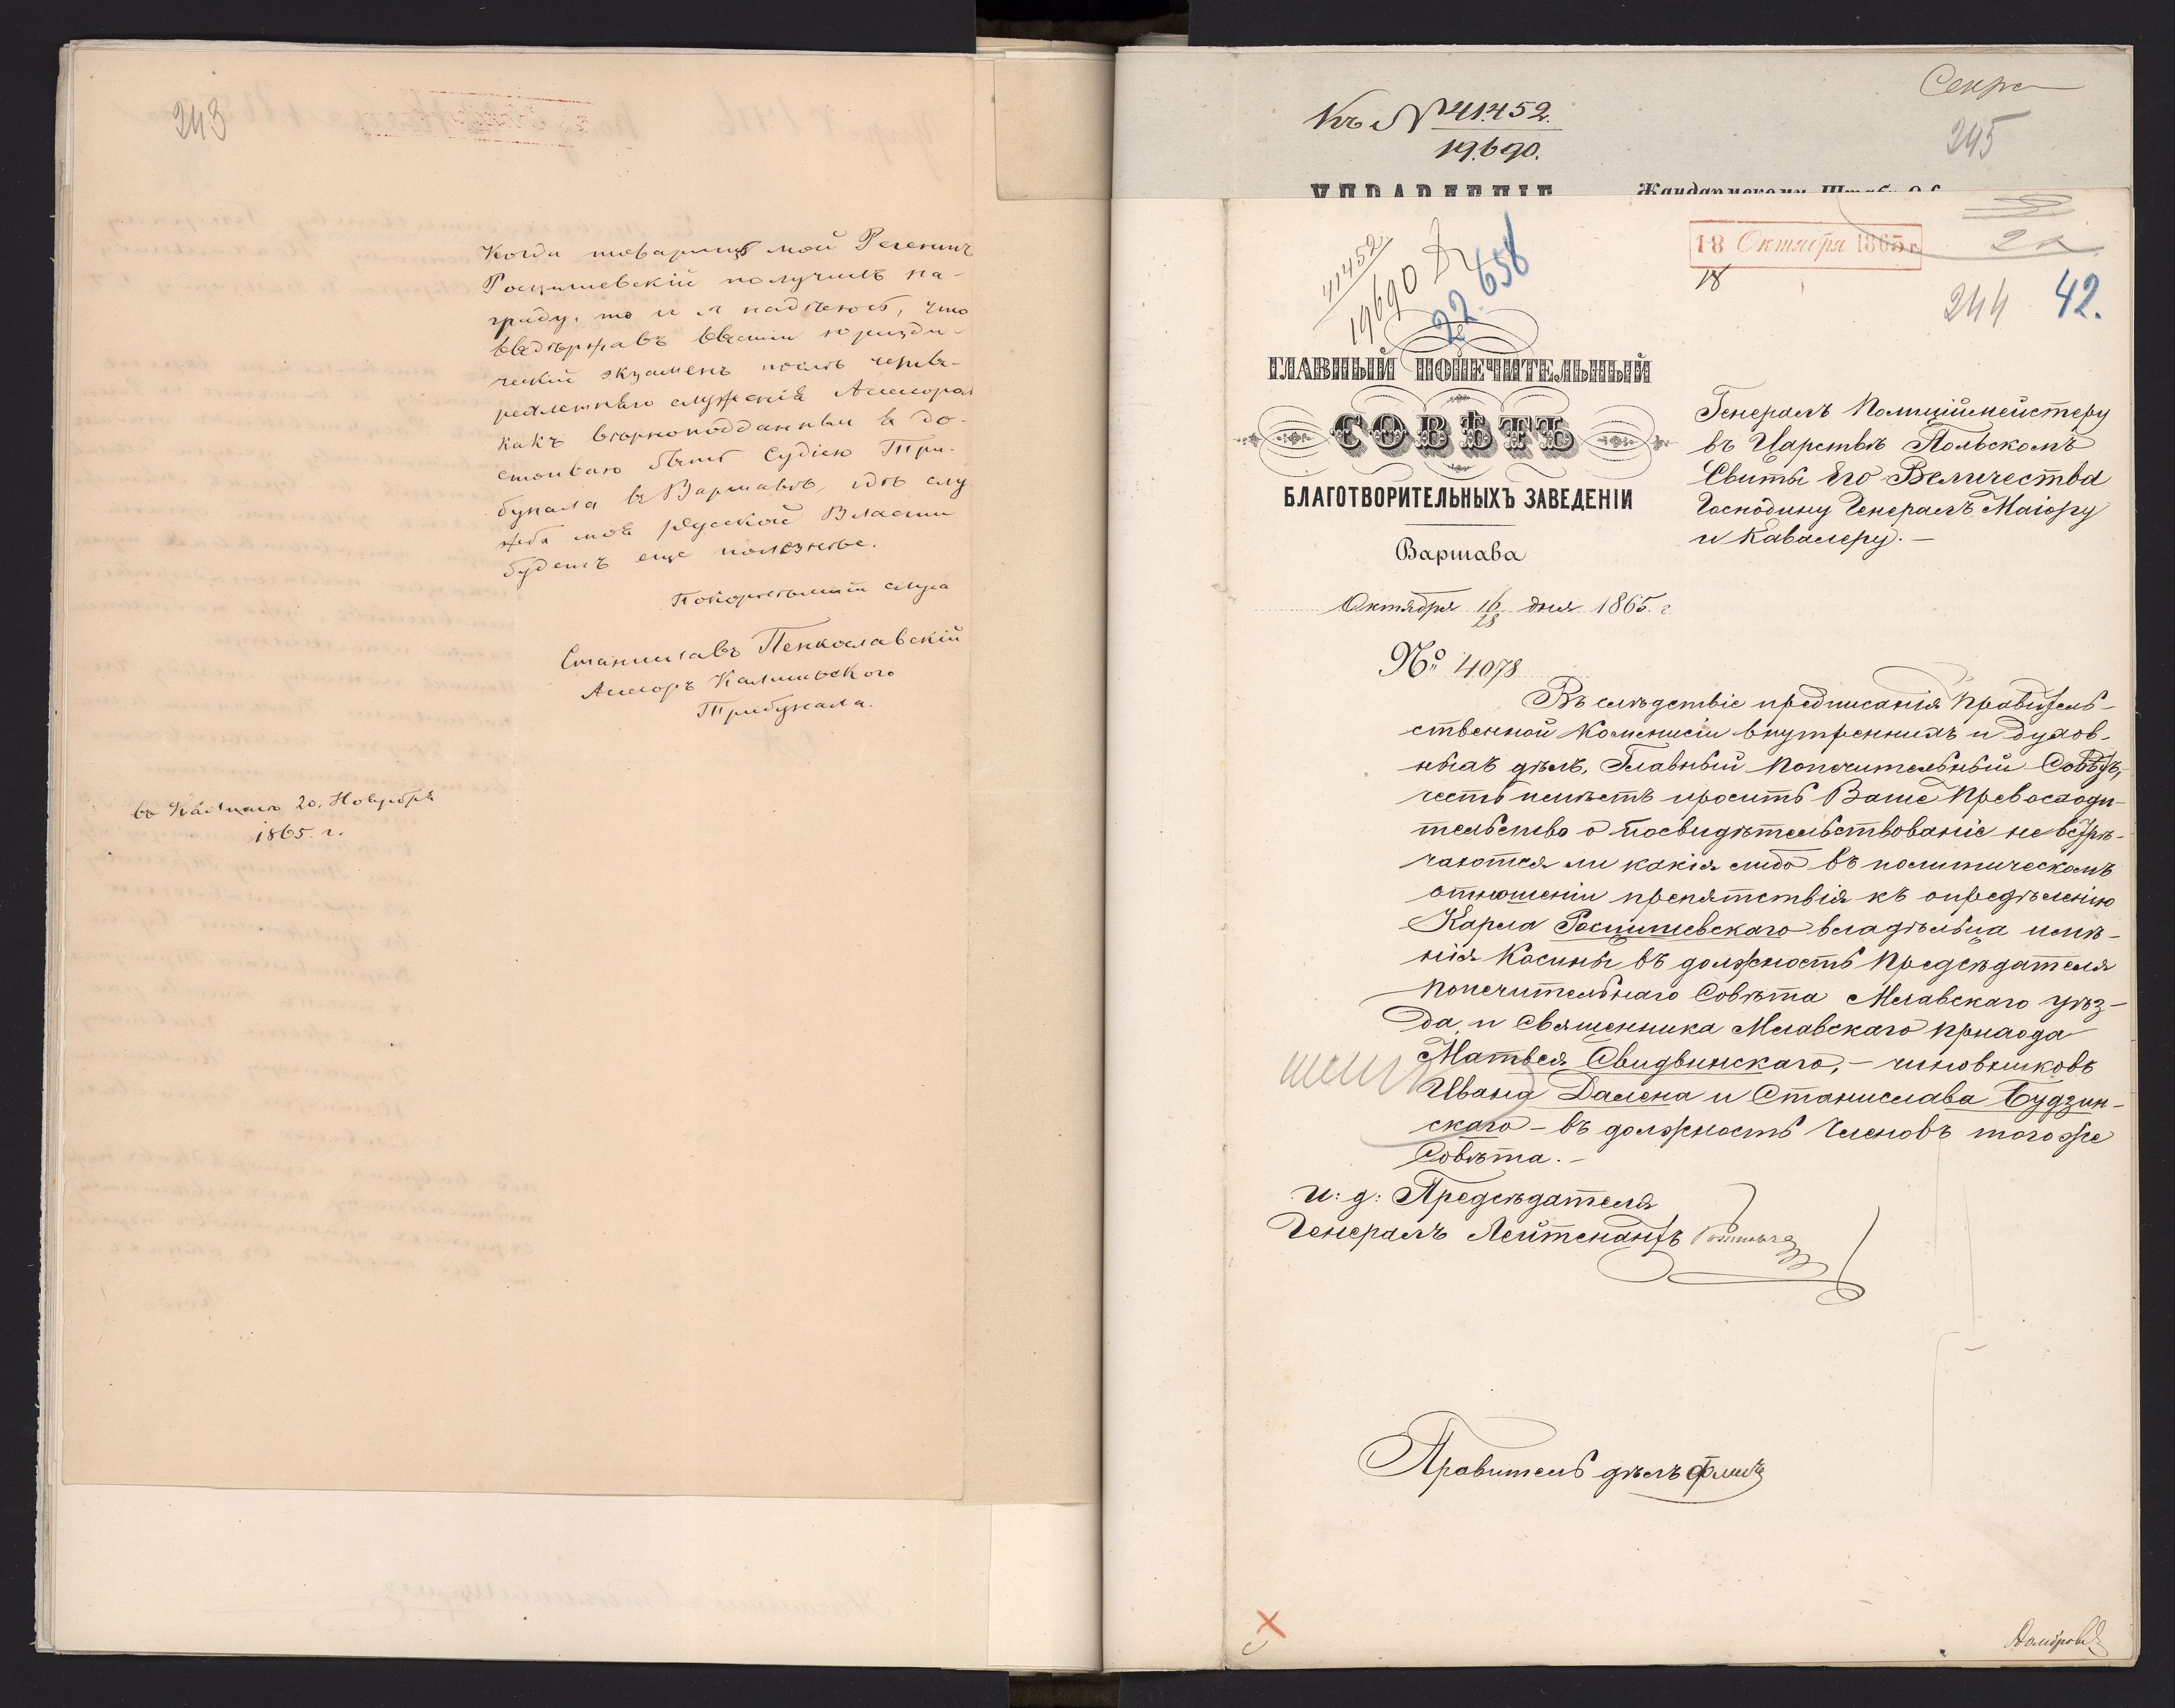 243
Когда товарищъ мой Регентъ
Росцишевскій получилъ на-
граду, то и я надѣюсь, что
выдержавъ высшій юриди-
ческій экзаменъ послѣ четы-
рехлѣтняго служенія Ассесоромъ
какъ вѣрноподданный удо-
стоиваю быть Судією Три-
бунала въ Варшавѣ, гдѣ слу
жба моя русской Власти
будетъ еще полезнѣе.
Покорнѣйшій слуга
Станиславъ Пенкославскій
Ассесоръ Калишскаго
Трибунала.
въ Калишѣ 20. Ноября
1865. г.
Къ № 41.452.
19.690.
Секре
245
УПРАВЛЕНІЕ
Жандармскому Штабъ Оф
41452
19690
22.658
18 Октября 1865 г.
18
244
42.
ГЛАВНЫЙ ПОПЕЧИТЕЛЬНЫЙ
СОВѢТЪ
БЛАГОТВОРИТЕЛЬНЫХЪ ЗАВЕДЕНІЙ
Варшава
Октября 16/28 дня 1865. г
№ 4078
Генералъ Полиціймейстеру
въ Царствѣ Польскомъ
Свиты Его Величества
Господину Генералъ Маіору
и Кавалеру. —
Въ слѣдствіе предписанія Правитель-
ственной Коммисіи внутреннихъ и духов-
ныхъ дѣлъ, Главный Попечительный Совѣтъ,
честь имѣетъ просить Ваше Превосходи-
тельство о посвидѣтельствованіе не встрѣ-
чаются ли какія либо въ политическомъ
отношеніи препятствія къ опредѣленію
Карла Росцишевскаго владѣльца имѣ-
нія Косины въ должность Предсѣдателя
Попечительнаго Совѣта Млавскаго уѣз-
да, и Священника Млавскаго прихода
Матвея Свидвинскаго, — чиновниковъ
Ивана Далена и Станислава Будзин-
скаго — въ должность Членовъ того же
Совѣта. —
И: д: Предсѣдателя
Генералъ Лейтенантъ
Правитель дѣлъ